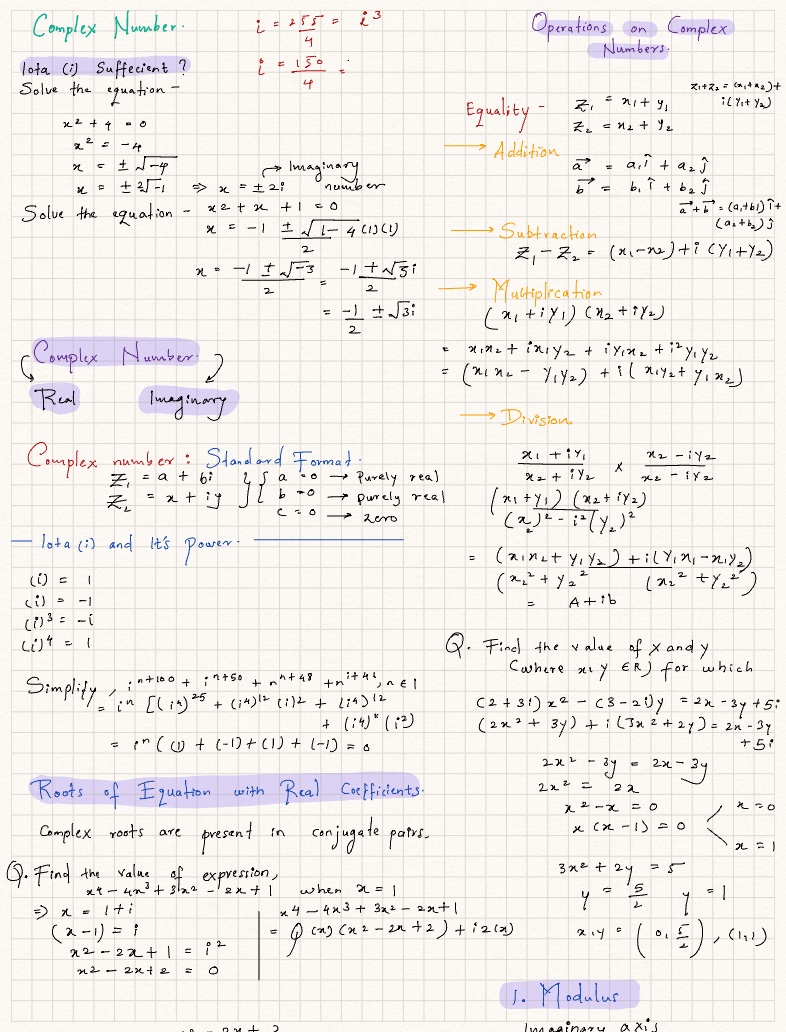 Complex Number.
i = 255/4 = i³
i = 150/4 =
Iota (i) Suffecient ?
Solve the equation -
x² + 4 = 0
x² = -4
x = ± √-4
x = ± 2√-1 ⇒ x = ± 2i → Imaginary number
Solve the equation - x2 + x + 1 = 0
x = -1 ± √1- 4(1)(1) / 2
x = -1 ± √-3 / 2 = -1 ± √3i / 2
= -1/2 ± √3i
Complex Number.
Real Imaginary
Complex number : Standard Format.
Z₁ = a + bi
Z₂ = x + iy
a = 0 → Purely real
b = 0 → purely real
c = 0 → zero
Iota (i) and It's Power.
(i) = 1
(i) = -1
(i)³ = -i
(i)⁴ = 1
Simplify, iⁿ⁺¹⁰⁰ + iⁿ⁺⁵⁰ + nⁿ⁺⁴⁸ + nⁱ⁺⁴⁶, n ∈ 1
= iⁿ [(i⁴)²⁵ + (i⁴)¹² (i)² + (i⁴)¹²
+ (i⁴)" (i²)
= iⁿ ( (1) + (-1) + (1) + (-1) = 0
Roots of Equation with Real Coefficients.
Complex roots are present in conjugate pairs.
Q. Find the value of expression,
x4 - 4x³ + 3x² - 2x + 1 when x = 1
⇒ x = 1+i
(x-1) = i
x² - 2x + 1 = i²
x² - 2x + 2 = 0
x4 - 4x3 + 3x² - 2x + 1
= Q (x) (x2 - 2x + 2) + i2(x)
Operations on Complex
Numbers.
Equality -
Z₁ = x₁ + y₁
Z₂ = x₂ + y₂
z₁+z₂ = (x₁+x₂)+
i(y₁+y₂)
→ Addition
a⃗ = a₁î + a₂ĵ
b⃗ = b₁î + b₂ĵ
a⃗+b⃗ = (a₁+b1)î+
(a₂+b₂)ĵ
→ Subtraction
Z₁ - Z₂ = (x₁-x₂) + i (y₁+y₂)
→ Multiplication
(x₁ + iy₁) (x₂ + iy₂)
= x₁x₂ + ix₁y₂ + iy₁x₂ + i²y₁y₂
= (x₁x₂ - y₁y₂) + i( x₁y₂ + y₁x₂)
→ Division
x₁ + iy₁ / x₂ + iy₂ × x₂ - iy₂ / x₂ - iy₂
(x₁ + y₁) (x₂ + iy₂)
(x₂)² - i²(y₂)²
= (x₁x₂ + y₁y₂) + i(y₁x₁ - x₁y₂)
(x₂² + y₂² (x₂² + y₂²)
= A + ib
Q. Find the value of x and y
(where x, y ∈ R) for which
(2+3i) x² - (3-2i)y = 2x - 3y + 5i
(2x² + 3y) + i (3x² + 2y) = 2x - 3y
+ 5i
2x² - 3y = 2x - 3y
2x² = 2x
x² - x = 0
x (x - 1) = 0
x = 0
x = 1
3x² + 2y = 5
y = 5/2 y = 1
x,y = (0, 5/2), (1,1)
1. Modulus
Imaginary axis